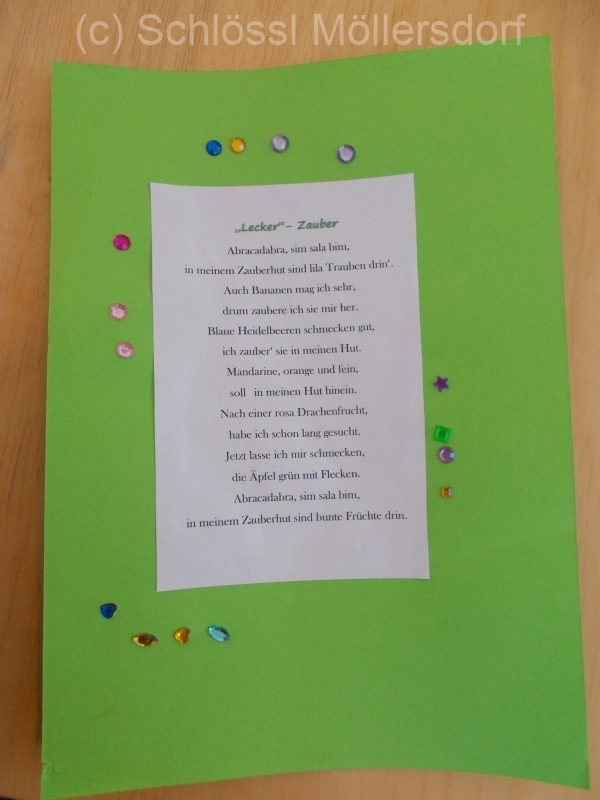 (c) Schlössl Möllersdorf
„Lecker“ – Zauber
Abracadabra, sim sala bim,
in meinem Zauberhut sind lila Trauben drin‘.
Auch Bananen mag ich sehr,
drum zaubere ich sie mir her.
Blaue Heidelbeeren schmecken gut,
ich zauber‘ sie in meinen Hut.
Mandarine, orange und fein,
soll in meinen Hut hinein.
Nach einer rosa Drachenfrucht,
habe ich schon lang gesucht.
Jetzt lasse ich mir schmecken,
die Äpfel grün mit Flecken.
Abracadabra, sim sala bim,
in meinem Zauberhut sind bunte Früchte drin.